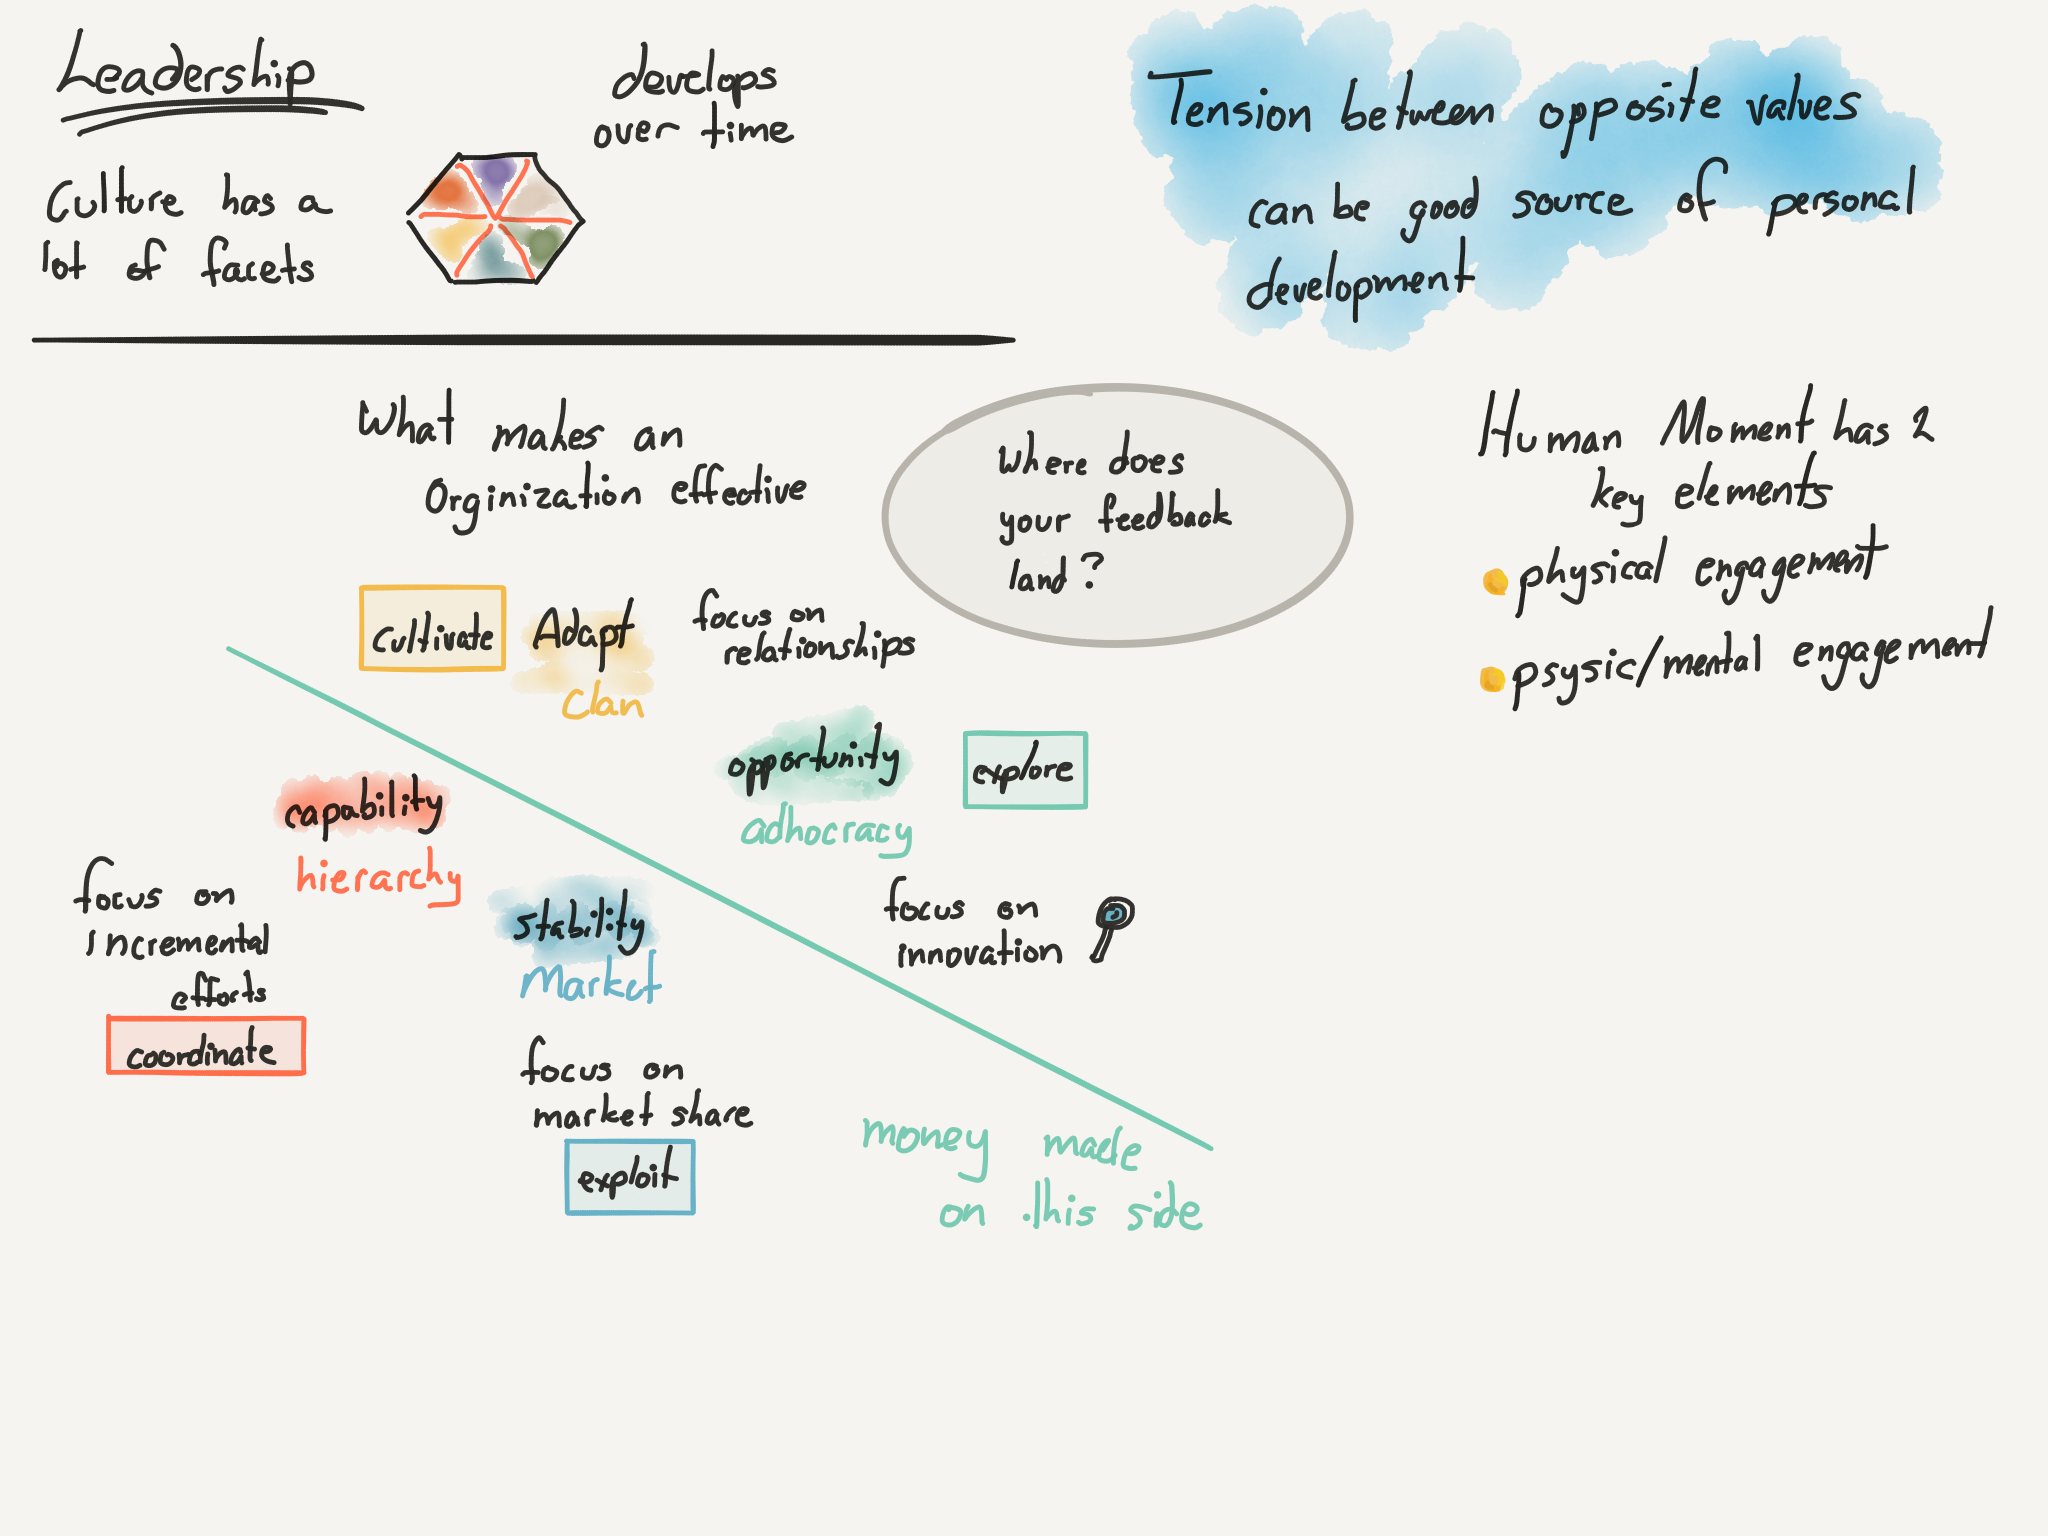 Leadership
Culture has a
lot of facets
develops
over time
Tension between opposite values
can be good source of personal
development
What makes an
Orginization effective
Where does
your feedback
land?
Human Moment has 2
key elements
physical engagement
psysic/mental engagement
Cultivate
Adapt
Clan
focus on
relationships
opportunity
adhocracy
explore
focus on
innovation
capability
hierarchy
focus on
incremental
efforts
coordinate
stability
Market
focus on
market share
exploit
money made
on this side